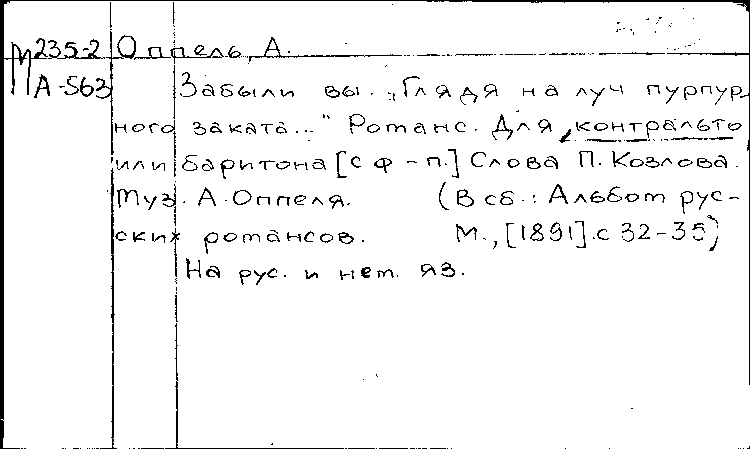 М 235-2 Оппель, А.
А-563 Забыли вы. „Глядя на луч пурпур-
ного заката..." Романс. Для контральто
или баритона [с ф-п.] Слова П. Козлова.
Муз. А. Оппеля. (В сб.: Альбом рус-
ских романсов. М., [1891]. с 32-35)
На рус. и нем. яз.